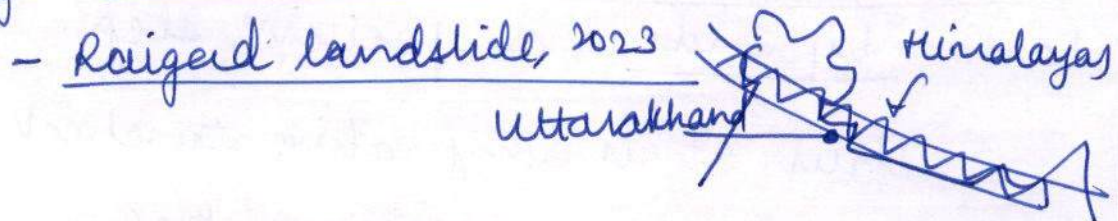 - Raigad landslide, 2023
Himalayas
Uttarakhand